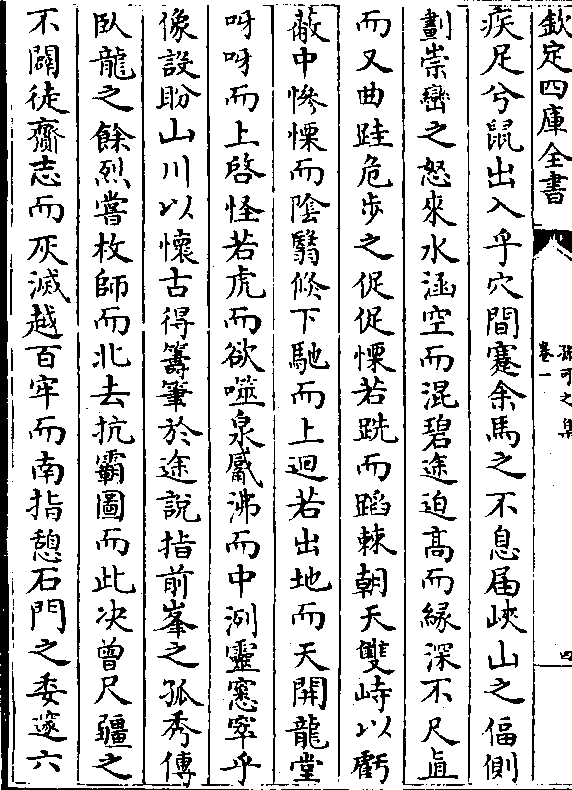 欽定四庫全書
孫可之集
卷一
四
疾足兮鼠出入乎穴間蹇余馬之不息屆峽山之偪側
劃崇巒之怒來水涵空而混碧途迫高而緣深不尺直
而又曲跬危步之促促慄若跣而蹈棘朝天雙峙以虧
蔽中慘慄而陰翳倏下馳而上迴若出地而天開龍堂
呀呀而上啓怪若虎而欲噬泉觱沸而中洌靈窓窣乎
像設盼山川以懷古得籌筆於途說指前峯之孤秀傳
臥龍之餘烈嘗枚師而北去抗霸圖而此决曾尺疆之
不闢徒齎志而灰滅越百牢而南指憩石門之委邃六